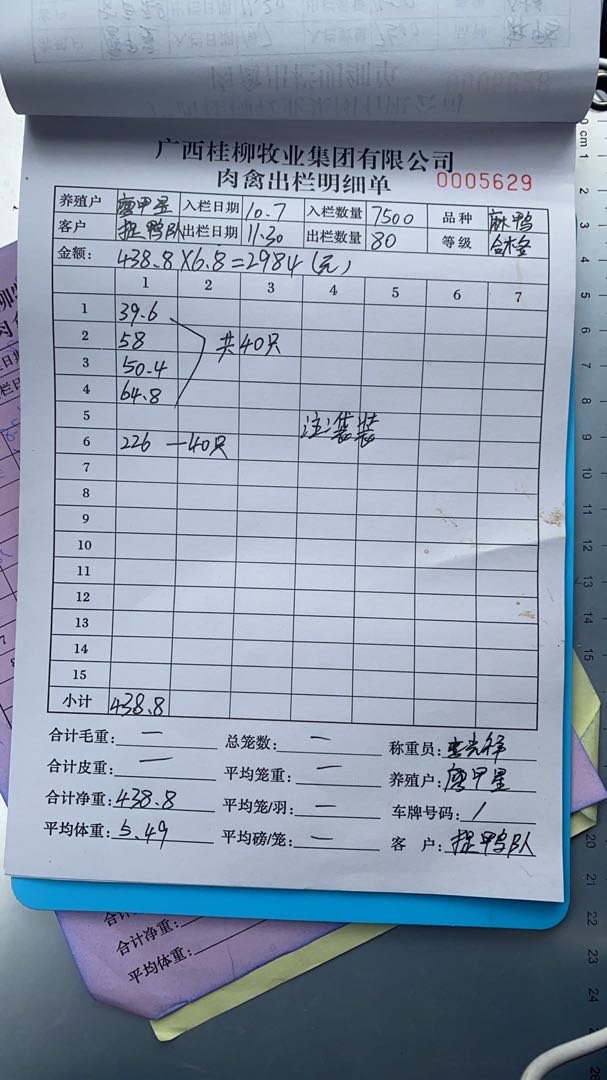 广西桂柳牧业集团有限公司
肉禽出栏明细单 0005629
养殖户 唐甲星 入栏日期 10.7 入栏数量 7500 品种 麻鸭
客户 捉鸭队 出栏日期 11.30 出栏数量 80 等级 合格
金额: 438.8×6.8=2984(元)
1 2 3 4 5 6 7
1 39.6
2 58 共40只
3 50.4
4 64.8
5 注:袋装
6 226 —40只
7
8
9
10
11
12
13
14
15
小计 438.8
合计毛重: — 总笼数: — 称重员:
合计皮重: — 平均笼重: — 养殖户: 唐甲星
合计净重: 438.8 平均笼/羽: — 车牌号码: /
平均体重: 5.49 平均磅/笼: — 客 户: 捉鸭队
合计净重:
平均体重: